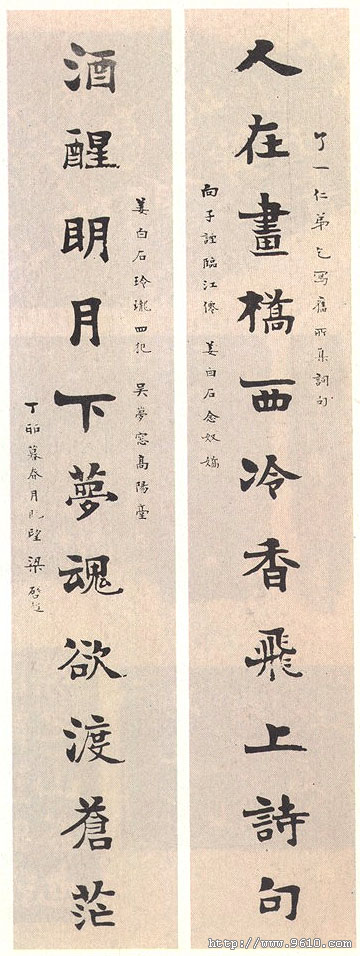 人在畫橋西冷香飛上詩句
了一仁弟乞寫舊所集詞句
向子諲臨江僊　姜白石念奴嬌
酒醒明月下夢魂欲渡蒼茫
姜白石玲瓏四犯　吳夢窓高陽臺
丁卯暮春月既望　梁啓超
http://www.9610.com